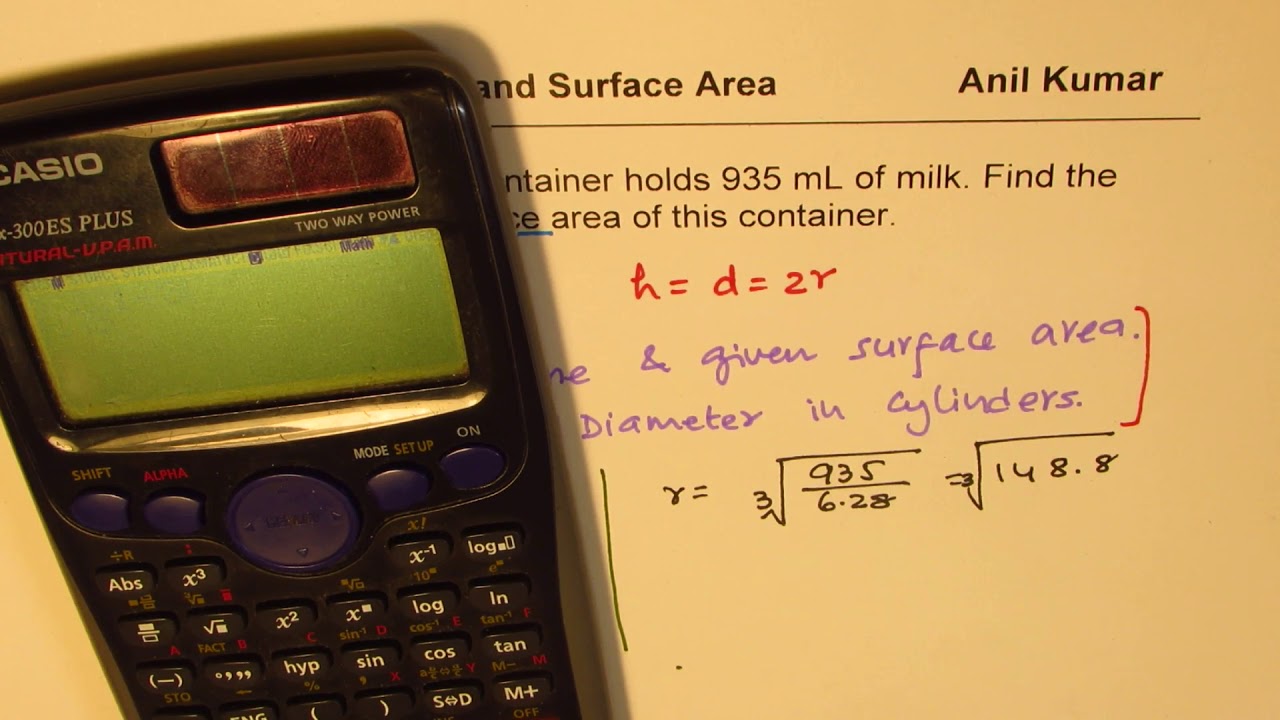 and Surface Area Anil Kumar
ntainer holds 935 mL of milk. Find the
ce area of this container.
h = d = 2r
& given surface area.
Diameter in cylinders.
r = ∛(935/6.28) = ∛148.8
CASIO
x-300ES PLUS
TWO WAY POWER
NATURAL-V.P.A.M.
Math
SHIFT ALPHA MODE SETUP ON
÷R x!
Abs x³ x⁻¹ log
10 e
√ x² x log ln
FACT B C sin⁻¹ D cos⁻¹ E tan⁻¹ F
(−) °,,, hyp sin cos tan
STO % X Y M− M
ENG ( ) S⇔D M+
OFF